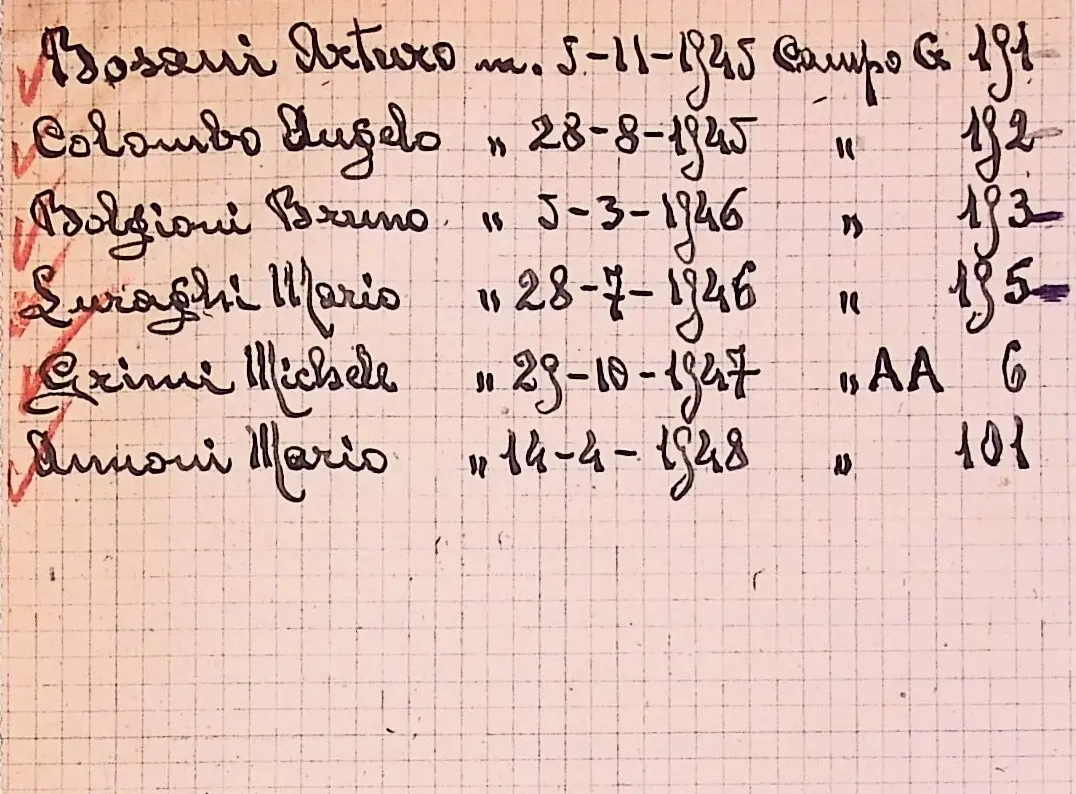 Bosani Arturo m. 5-11-1945 Campo G 191
Colombo Angelo " 28-8-1945 " 192
Bolgioni Bruno " 5-3-1946 " 193
Luraghi Mario " 28-7-1946 " 195
Grimi Michele " 29-10-1947 " AA 6
Annoni Mario " 14-4-1948 " 101